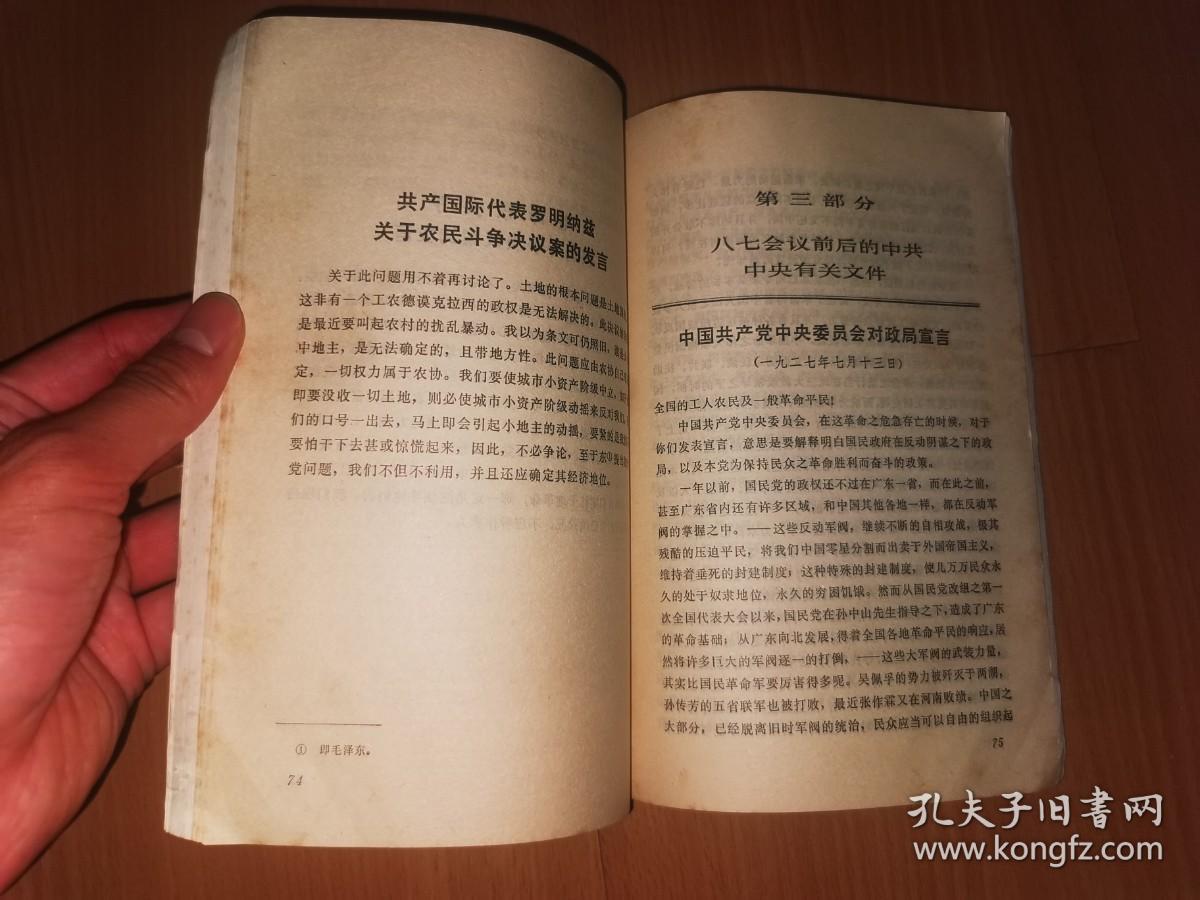 共产国际代表罗明纳兹
关于农民斗争决议案的发言
关于此问题用不着再讨论了。土地的根本问题是土地
这非有一个工农德谟克拉西的政权是无法解决的。此决议
是最近要叫起农村的扰乱暴动。我以为条文可仍照旧,
中地主,是无法确定的,且带地方性。此问题应由农协自己
定,一切权力属于农协。我们要使城市小资产阶级中立,
即要没收一切土地,则必使城市小资产阶级动摇来反对我
们的口号一出去,马上即会引起小地主的动摇,要紧的是
要怕干下去甚或惊慌起来,因此,不必争论,至于东
党问题,我们不但不利用,并且还应确定其经济地位。
① 即毛泽东。
74
第三部分
八七会议前后的中共
中央有关文件
中国共产党中央委员会对政局宣言
(一九二七年七月十三日)
全国的工人农民及一般革命平民!
中国共产党中央委员会,在这革命之危急存亡的时候,对于
你们发表宣言,意思是要解释明白国民政府在反动阴谋之下的政
局,以及本党为保持民众之革命胜利而奋斗的政策。
一年以前,国民党的政权还不过在广东一省,而在此之前,
甚至广东省内还有许多区域,和中国其他各地一样,都在反动军
阀的掌握之中。——这些反动军阀,继续不断的自相攻战,极其
残酷的压迫平民,将我们中国零星分割而出卖于外国帝国主义,
维持着垂死的封建制度;这种特殊的封建制度,使几万万民众永
久的处于奴隶地位,永久的穷困饥饿。然而从国民党改组之第一
次全国代表大会以来,国民党在孙中山先生指导之下,造成了广东
的革命基础;从广东向北发展,得着全国各地革命平民的响应,居
然将许多巨大的军阀逐一的打倒,——这些大军阀的武装力量,
其实比国民革命军要厉害得多呢。吴佩孚的势力被歼灭于两湖,
孙传芳的五省联军也被打败,最近张作霖又在河南败绩。中国之
大部分,已经脱离旧时军阀的统治,民众应当可以自由的组织起
75
孔夫子旧书网
www.kongfz.com